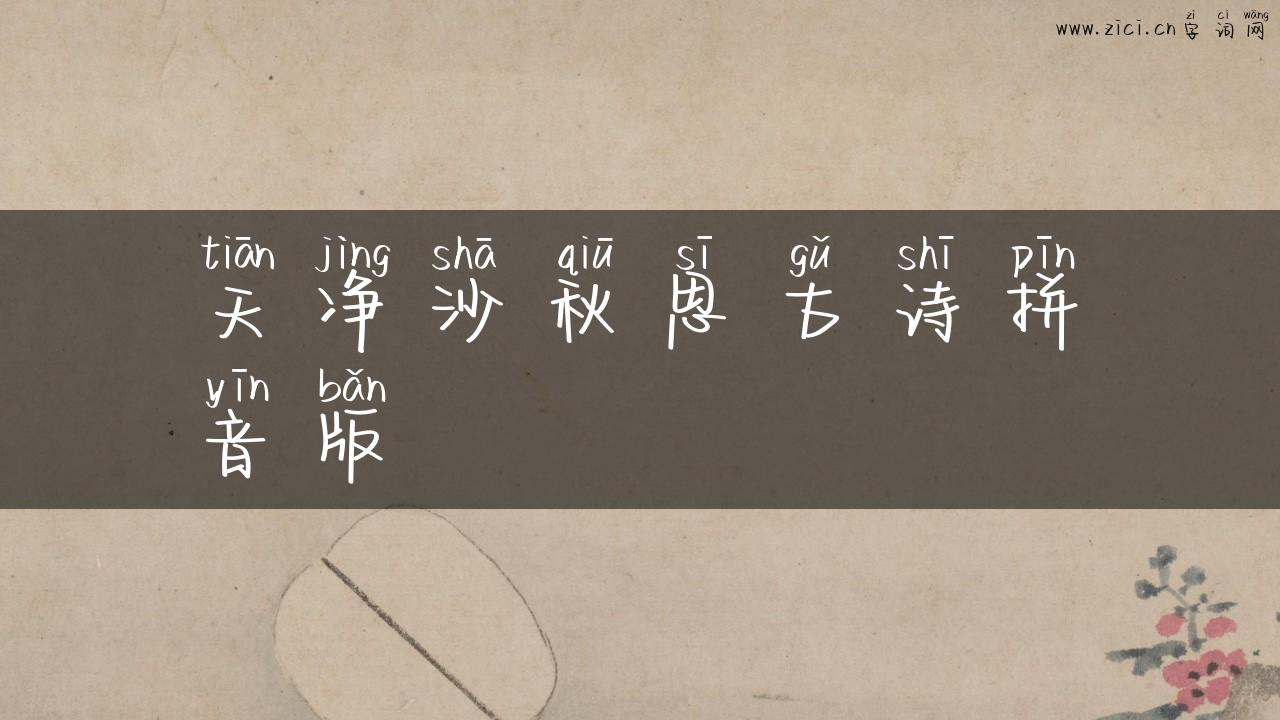 zì cí wǎng
www.zici.cn 字 词 网
tiān jìng shā qiū sī gǔ shī pīn
天 净 沙 秋 思 古 诗 拼
yīn bǎn
音 版